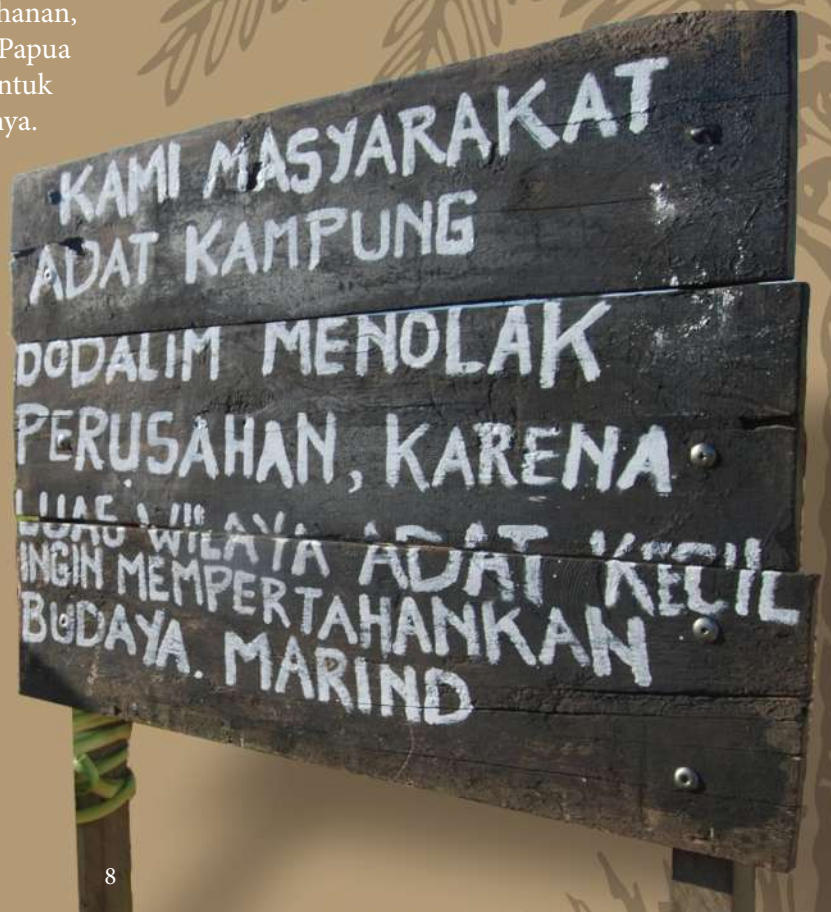 hanan,
Papua
ntuk
nya.
KAMI MASYARAKAT
ADAT KAMPUNG
DODALIM MENOLAK
PERUSAHAN, KARENA
LUAS WILAYA ADAT KECIL
INGIN MEMPERTAHANKAN
BUDAYA. MARIND
8